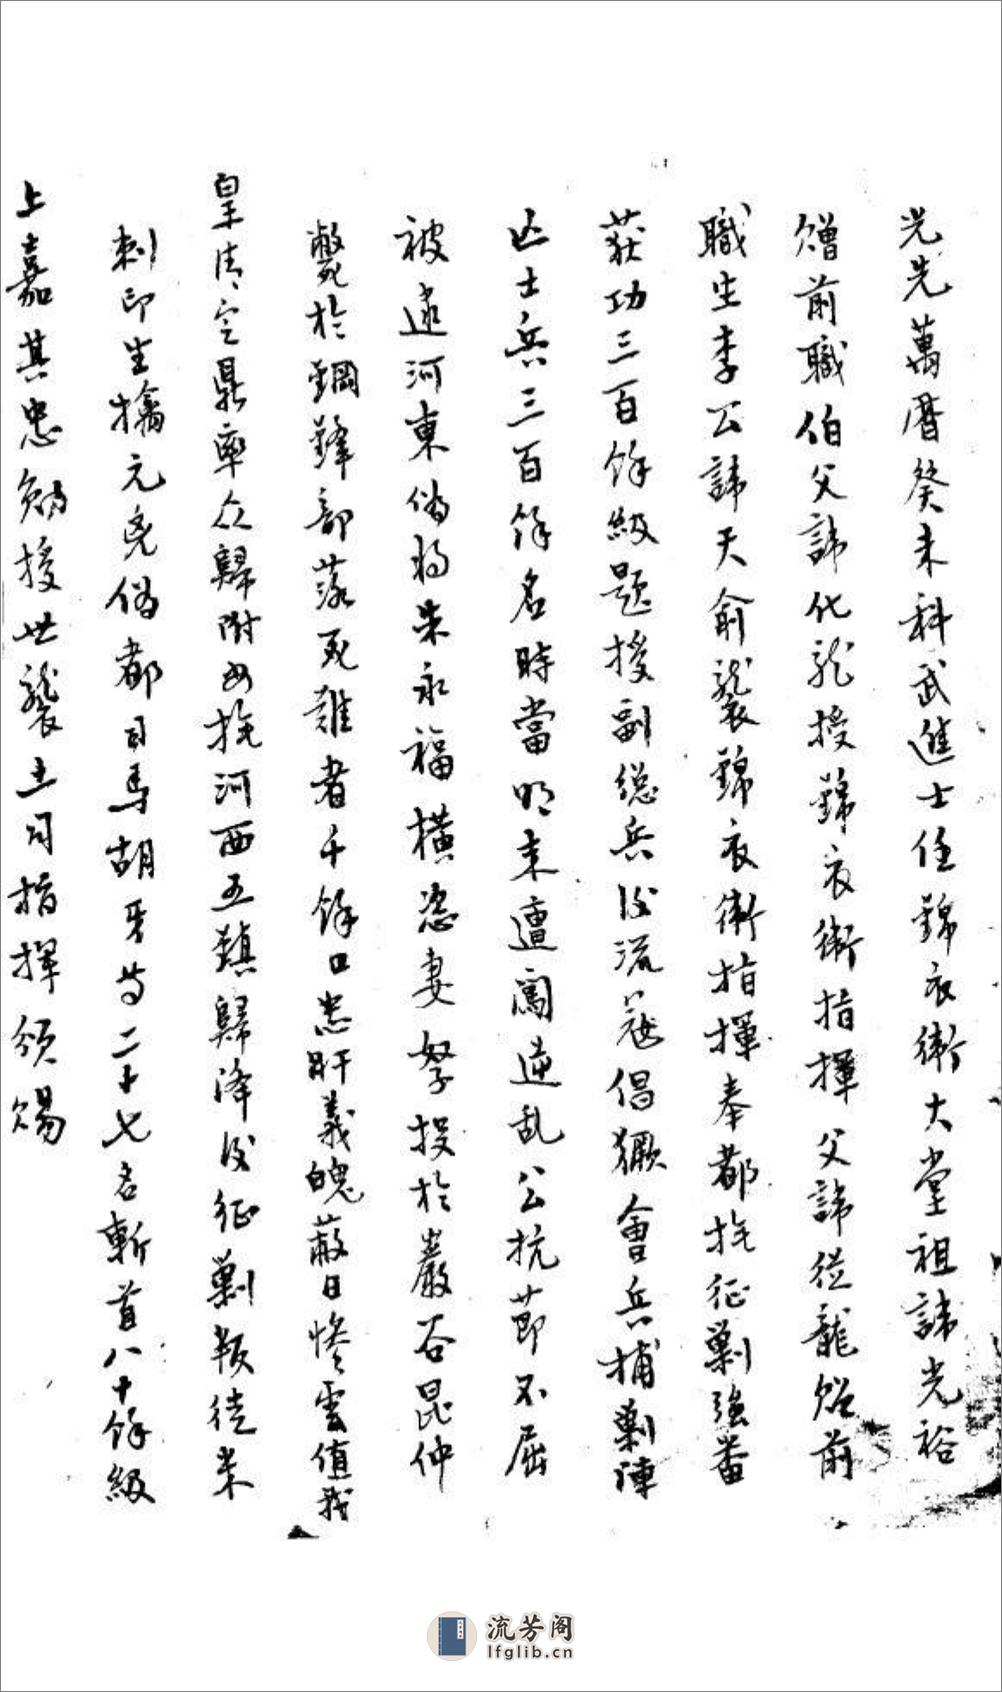 光先萬曆癸未科武進士任錦衣衛大堂祖諱光裕
贈前職伯父諱化龍授錦衣衛指揮父諱從龍贈前
職生李公諱天俞襲錦衣衛指揮奉都撫征剿強番
获功三百餘級題授副總兵後流寇倡獗會兵捕剿陣
亡士兵三百餘名時當明末遭闖逆乱公抗節不屈
被逮河東偽將朱永福橫恣妻孥投於巖谷昆仲
斃於鋼鋒部落死難者千餘口忠肝義魄蔽日慘雲值我
皇清定鼎率众歸附安撫河西五鎮歸降後征剿叛徒米
剌印生擒元兇偽都司馬胡牙等二十七名斬首八十餘級
上嘉其忠勉授世襲土司指揮頒賜
流芳阁
lfglib.cn